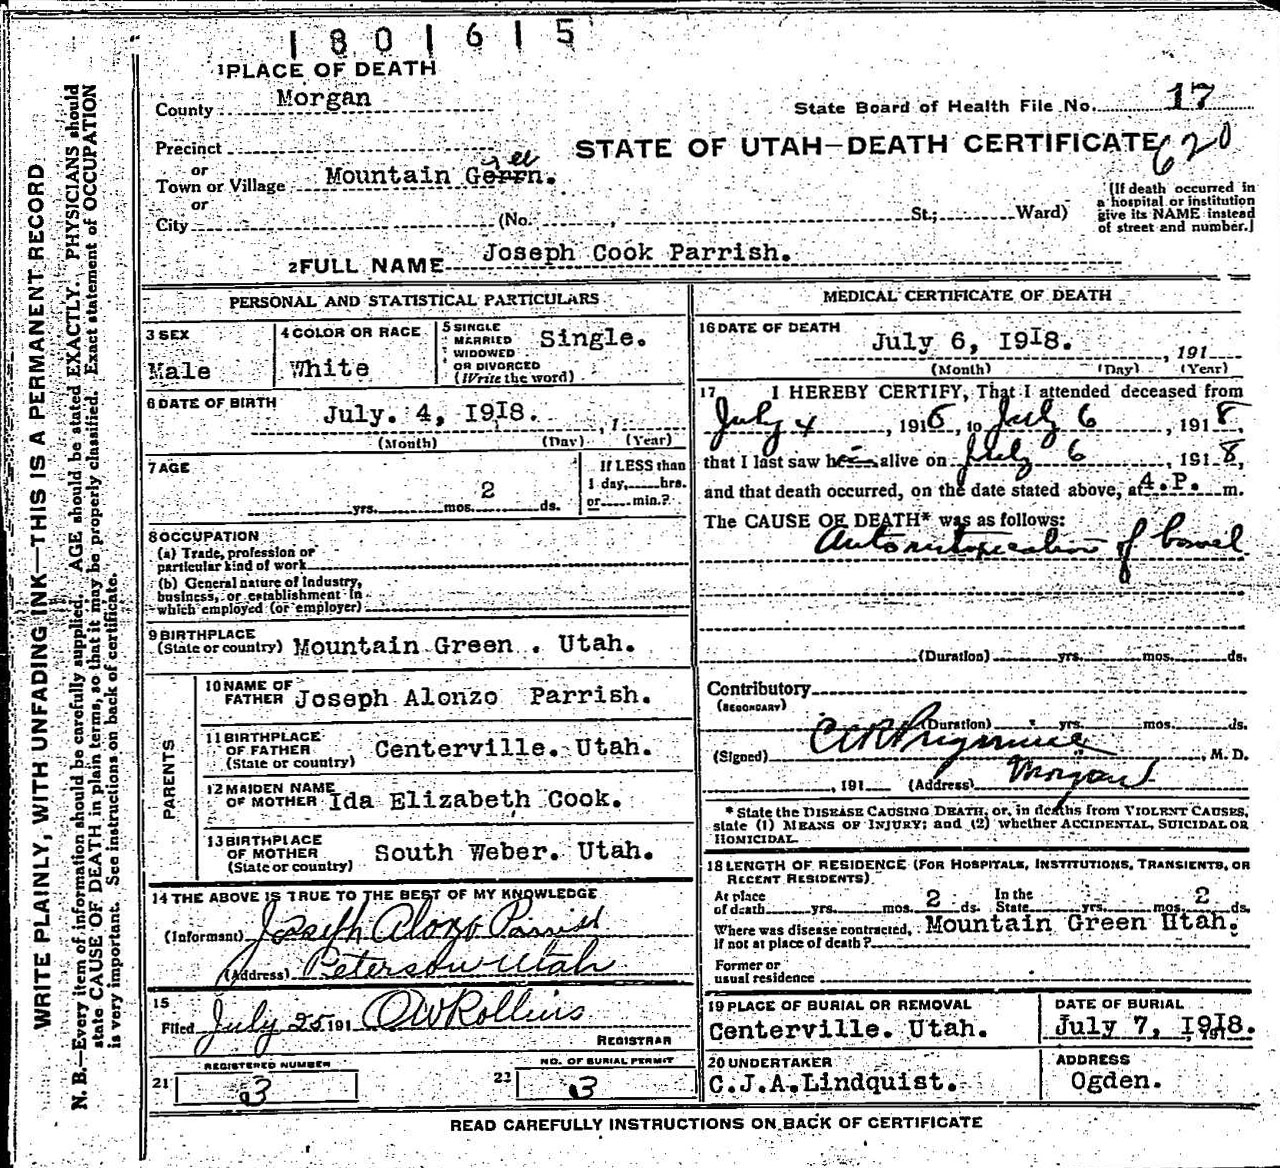 1801615
1 PLACE OF DEATH
County Morgan
State Board of Health File No. 17
Precinct
STATE OF UTAH—DEATH CERTIFICATE 620
or
Town or Village Mountain Gerrn. ree
or
City (No. , St.; Ward)
(If death occurred in
a hospital or institution
give its NAME instead
of street and number.)
2 FULL NAME Joseph Cook Parrish.
PERSONAL AND STATISTICAL PARTICULARS
3 SEX
Male
4 COLOR OR RACE
White
5 SINGLE
MARRIED
WIDOWED
OR DIVORCED
(Write the word)
Single.
6 DATE OF BIRTH
July. 4, 1918. , 1
(Month) (Day) (Year)
7 AGE
2
yrs. mos. ds.
If LESS than
1 day, hrs.
or min.?
8 OCCUPATION
(a) Trade, profession or
particular kind of work
(b) General nature of industry,
business, or establishment in
which employed (or employer)
9 BIRTHPLACE
(State or country) Mountain Green . Utah.
PARENTS
10 NAME OF
FATHER Joseph Alonzo Parrish.
11 BIRTHPLACE
OF FATHER
(State or country) Centerville. Utah.
12 MAIDEN NAME
OF MOTHER Ida Elizabeth Cook.
13 BIRTHPLACE
OF MOTHER
(State or country) South Weber. Utah.
14 THE ABOVE IS TRUE TO THE BEST OF MY KNOWLEDGE
(Informant) Joseph Alonzo Parrish
(Address) Peterson Utah
15
Filed July 25 191 O W Rollins
REGISTRAR
REGISTERED NUMBER
21 3
NO. OF BURIAL PERMIT
22 3
MEDICAL CERTIFICATE OF DEATH
16 DATE OF DEATH
July 6, 1918. , 191
(Month) (Day) (Year)
17 I HEREBY CERTIFY, That I attended deceased from
July 4 , 1918, to July 6 , 1918,
that I last saw h alive on July 6 , 1918,
and that death occurred, on the date stated above, at 4.P. m.
The CAUSE OF DEATH* was as follows:
Autointoxication of bowel
(Duration) yrs. mos. ds.
Contributory
(SECONDARY)
(Duration) yrs. mos. ds.
(Signed) , M. D.
, 191 (Address) Morgan
* State the DISEASE CAUSING DEATH, or, in deaths from VIOLENT CAUSES,
state (1) MEANS OF INJURY; and (2) whether ACCIDENTAL, SUICIDAL OR
HOMICIDAL.
18 LENGTH OF RESIDENCE (FOR HOSPITALS, INSTITUTIONS, TRANSIENTS, OR
RECENT RESIDENTS)
At place
of death yrs. mos. 2 ds. In the
State yrs. mos. 2 ds.
Where was disease contracted,
if not at place of death? Mountain Green Utah.
Former or
usual residence
19 PLACE OF BURIAL OR REMOVAL
Centerville. Utah.
DATE OF BURIAL
July 7, 1918. , 191
20 UNDERTAKER
C.J.A.Lindquist.
ADDRESS
Ogden.
READ CAREFULLY INSTRUCTIONS ON BACK OF CERTIFICATE
WRITE PLAINLY, WITH UNFADING INK—THIS IS A PERMANENT RECORD
N. B.—Every item of information should be carefully supplied. AGE should be stated EXACTLY. PHYSICIANS should
state CAUSE OF DEATH in plain terms, so that it may be properly classified. Exact statement of OCCUPATION
is very important. See instructions on back of certificate.